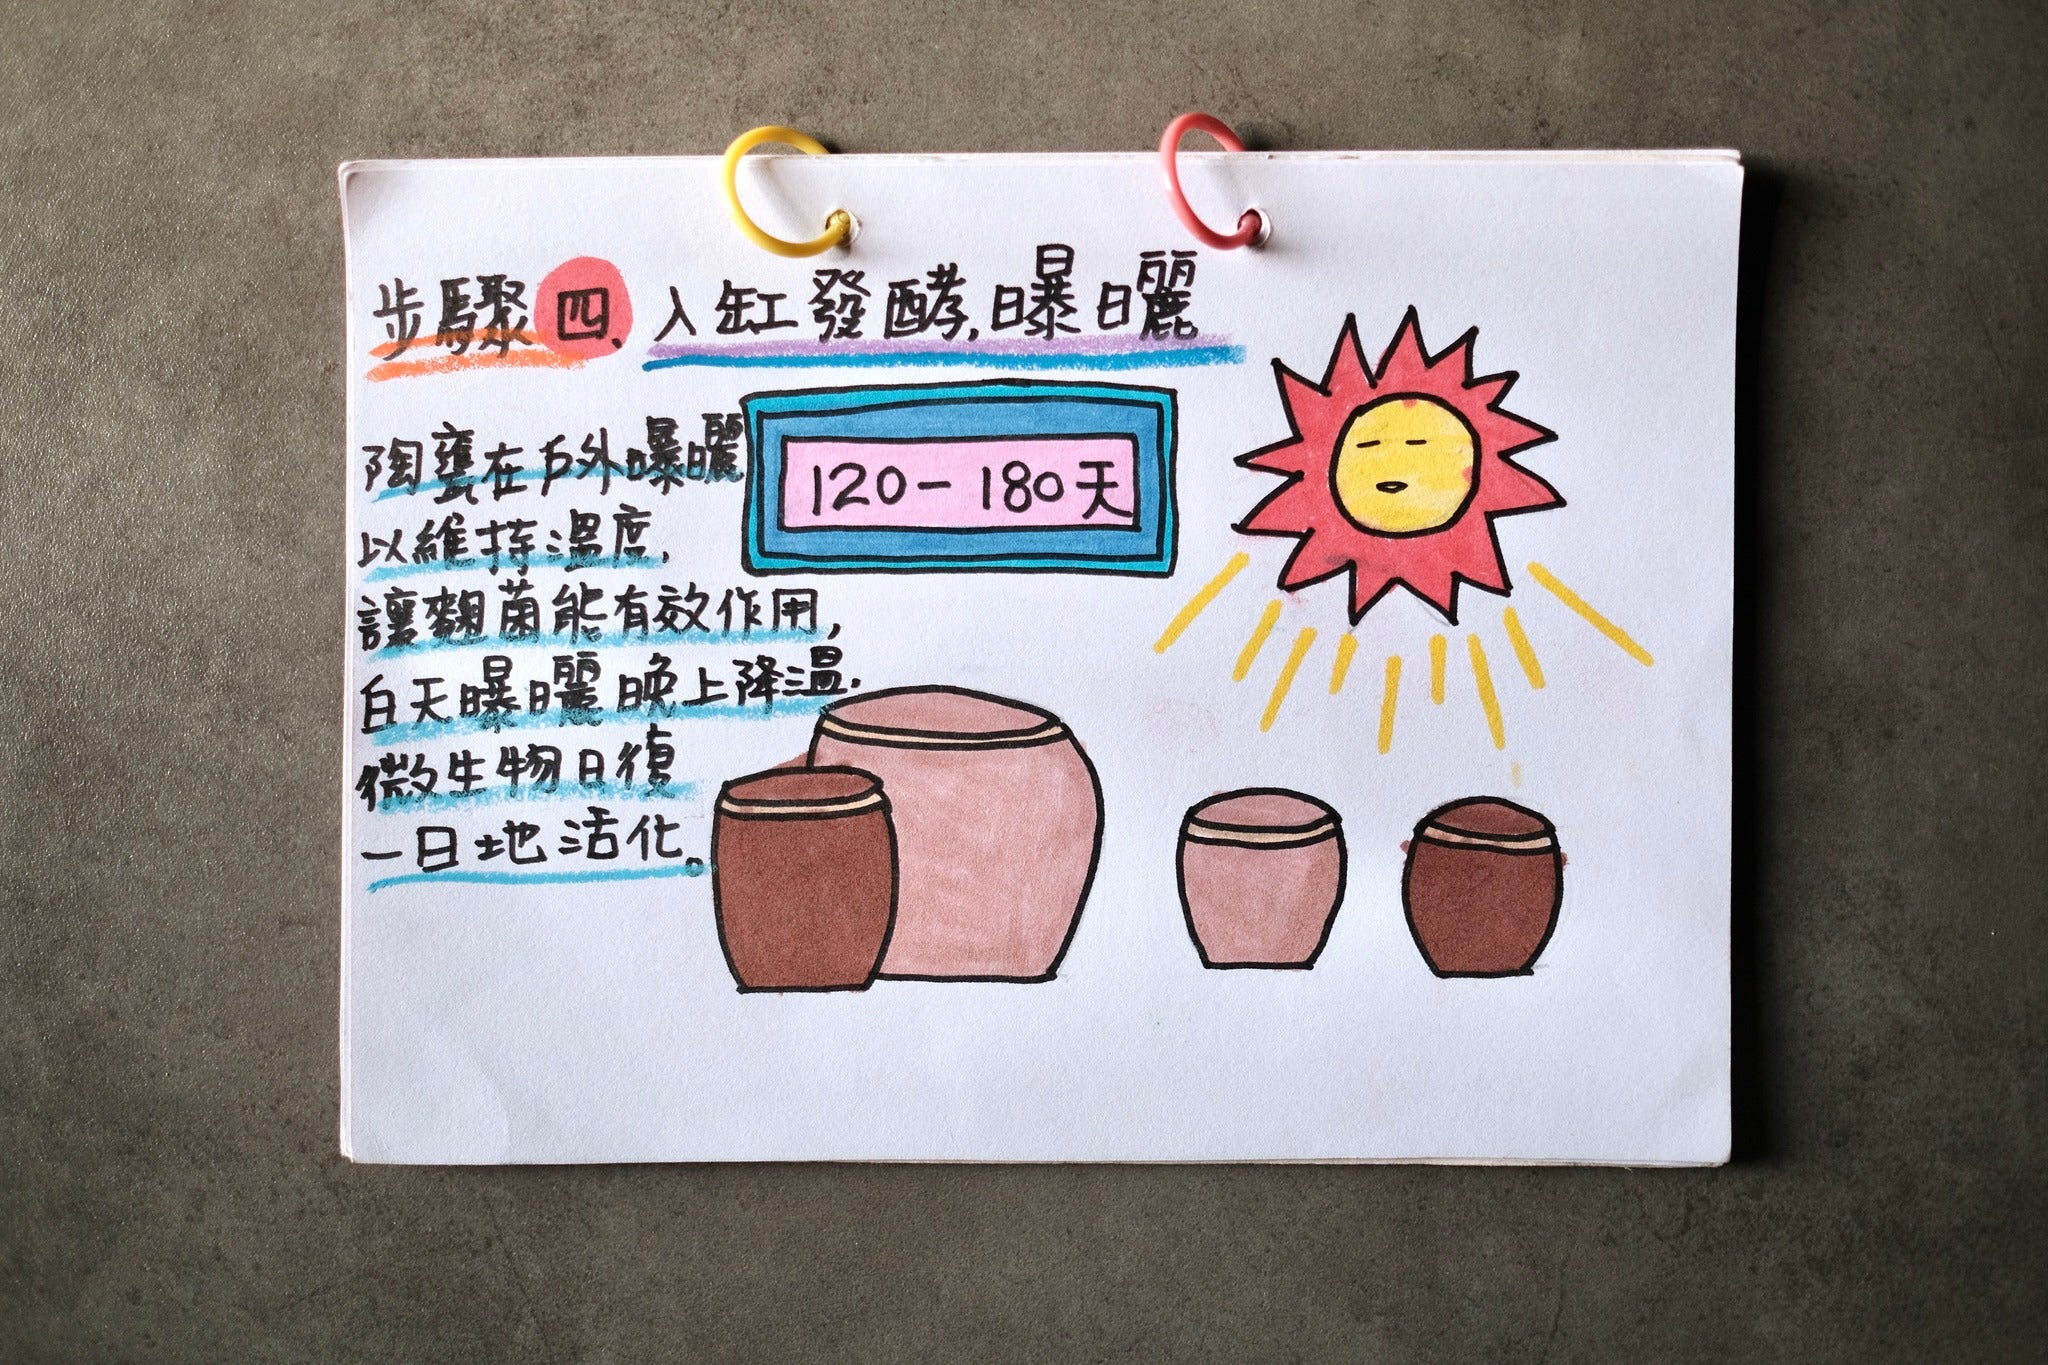 步驟四、入缸發酵,曝曬
120-180天
陶甕在戶外曝曬
以維持溫度,
讓麴菌能有效作用,
白天曝曬晚上降溫,
微生物日復
一日地活化。